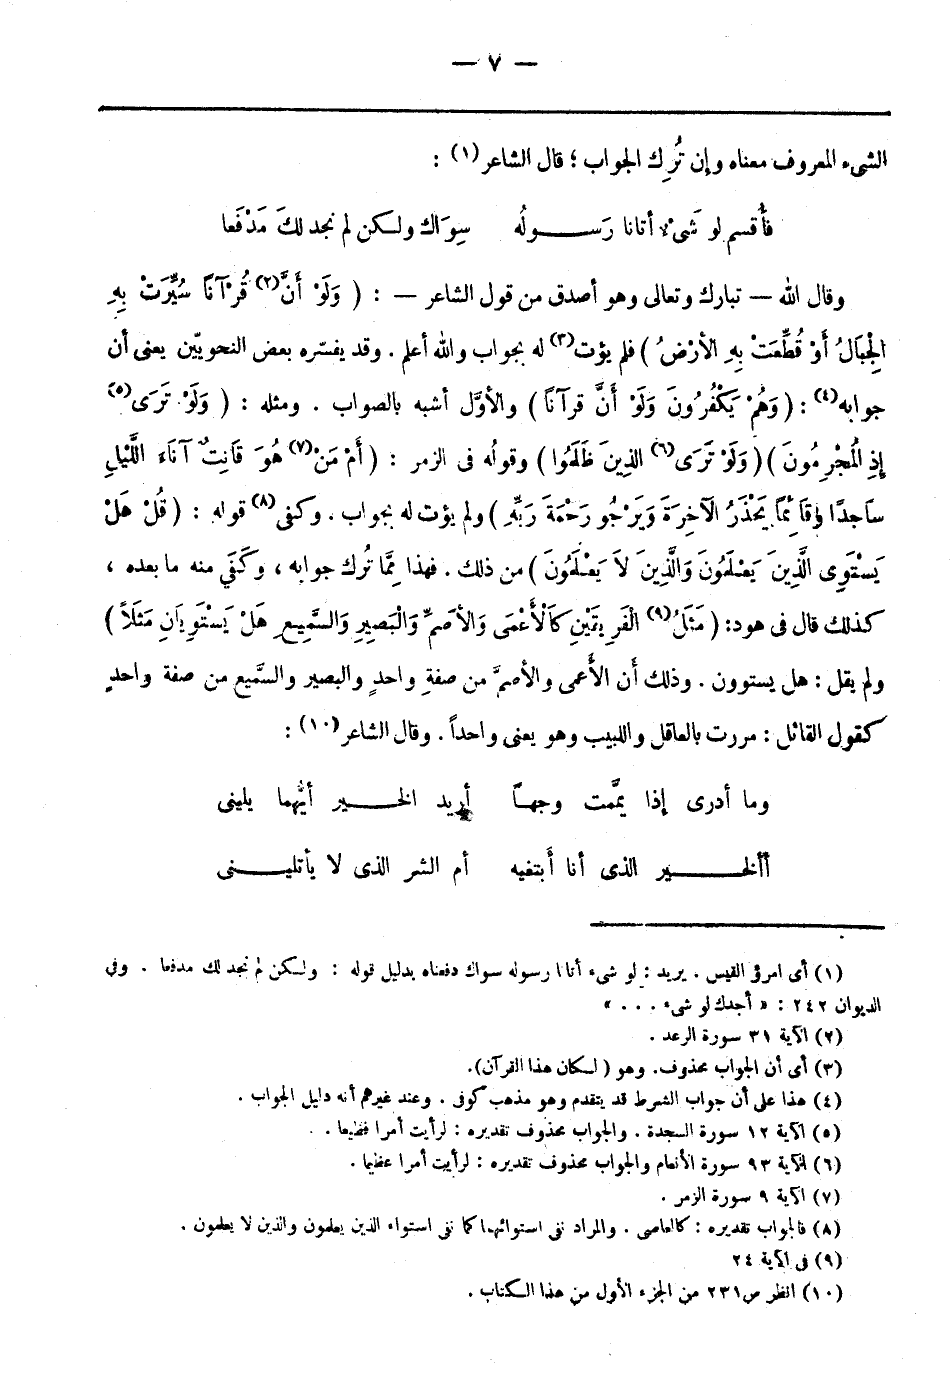 — ٧ —
الشىء المعروف معناه وإن تُرِك الجواب ؛ قال الشاعر(١) :
فأُقسم لو شَىْء أتانا رَســـولُه سِوَاك ولكن لم نجد لكَ مَدْفَعا
وقال الله — تبارك وتعالى وهو أصدق من قول الشاعر — : ( وَلَوْ أَنَّ(٢) قُرْآنًا سُيِّرَتْ بِهِ
الْجِبَالُ أَوْ قُطِّعَتْ بِهِ الأَرْضُ ) فلم يؤت(٣) له بجواب والله أعلم . وقد يفسّره بعض النحويّين يعنى أن
جوابه(٤) : ( وَهُمْ يَكْفُرُونَ وَلَوْ أَنَّ قرآنًا ) والأوّل أشبه بالصواب . ومثله : ( وَلَوْ تَرَى(٥)
إِذِ الْمُجْرِمُونَ ) ( وَلَوْ تَرَى(٦) الذِينَ ظَلَمُوا ) وقولُه فى الزمر : ( أَمْ مَنْ(٧) هُوَ قَانِتٌ آنَاءَ اللَّيْلِ
سَاجِدًا وَقَائِمًا يَحْذَرُ الآخِرَةَ وَيَرْجُو رَحْمَةَ رَبِّهِ ) ولم يؤت له بجواب . وكفى(٨) قوله : ( قُلْ هَلْ
يَسْتَوِى الَّذِينَ يَعْلَمُونَ وَالَّذِينَ لَا يَعْلَمُونَ ) من ذلك . فهذا مِمَّا تُرك جوابه ، وكَفَى منه ما بعده ،
كذلك قال فى هود: ( مَثَلُ(٩) الْفَرِيقَيْنِ كَالْأَعْمَى وَالأصَمِّ وَالْبَصِيرِ وَالسَّمِيعِ هَلْ يَسْتَوِيَانِ مَثَلاً )
ولم يقل : هل يستوون . وذلك أن الأَعمى والأصمَّ من صفةِ واحدٍ والبصير والسَّميع من صفة واحدٍ
كقول القائل : مررت بالعاقل واللبيب وهو يعنى واحداً . وقال الشاعر(١٠) :
وما أدرى إذا يَمَّمت وجهـاً أريد الخــير أيُّهما يلينى
أألخـــير الذى أنا أبتغيه أم الشر الذى لا يأتلينـــى
(١) أى امرؤ القيس . يريد : لو شىء أتانا رسوله سواك دفعناه بدليل قوله : ولكن لم نجد لك مدفعا . وفى
الديوان ٢٤٢ : « أجدك لو شىء . . . »
(٢) الآية ٣١ سورة الرعد .
(٣) أى أن الجواب محذوف. وهو ( لكان هذا القرآن).
(٤) هذا على أن جواب الشرط قد يتقدم وهو مذهب كوفى . وعند غيرهم أنه دليل الجواب .
(٥) الآية ١٢ سورة السجدة . والجواب محذوف تقديره : لرأيت أمرا فظيعا . .
(٦) الآية ٩٣ سورة الأنعام والجواب محذوف تقديره : لرأيت أمرا عظيما .
(٧) الآية ٩ سورة الزمر .
(٨) فالجواب تقديره : كالعاصى . والمراد نفى استوائهما كما نفى استواء الذين يعلمون والذين لا يعلمون .
(٩) فى الآية ٢٤
(١٠) انظر ص٢٣١ من الجزء الأول من هذا الكتاب .